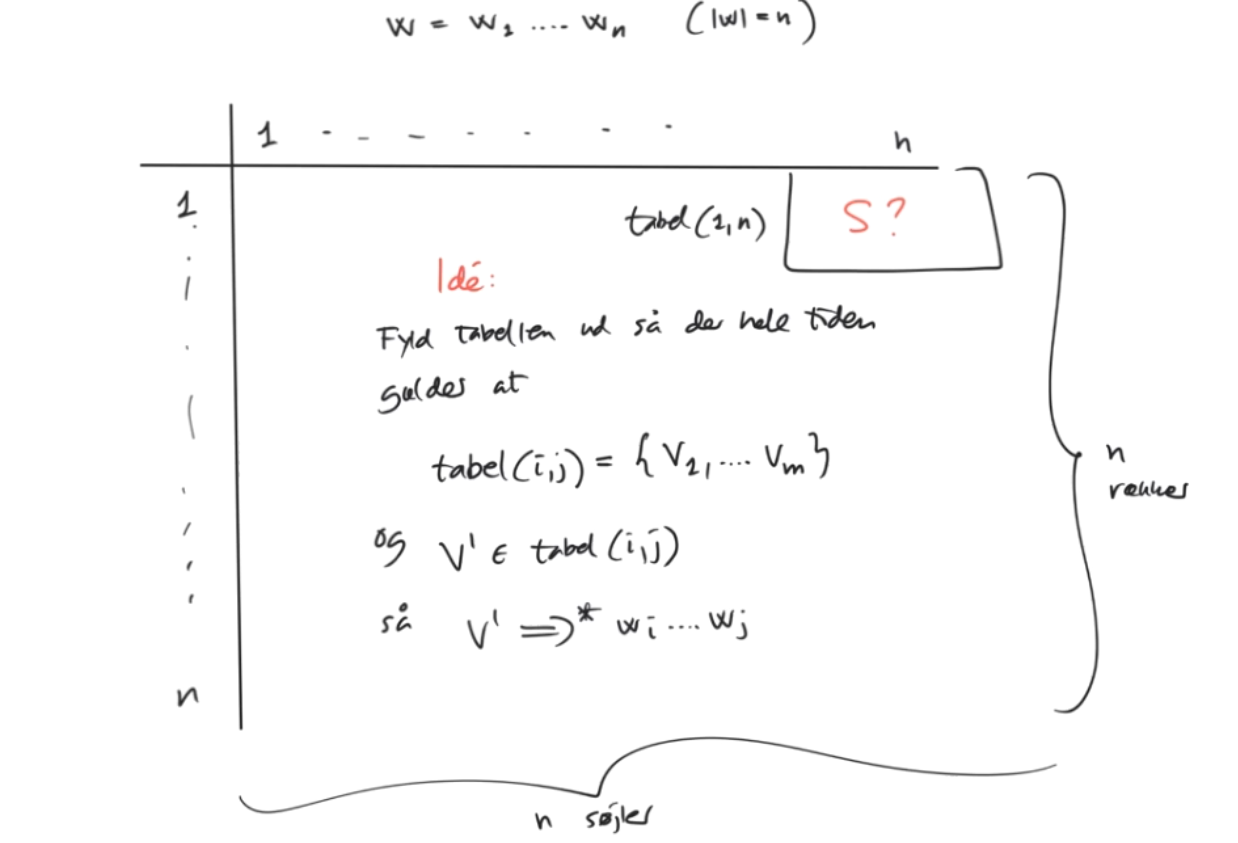 w = w₁ .... wₙ (|w| = n)
1 . - - . . . . n
1
tabel(1,n) S?
Idé:
Fyld tabellen ud så der hele tiden
gælder at
tabel(i,j) = { V₁, .... Vₘ }
og V' ∈ tabel(i,j)
så V' ⇒* wᵢ .... wⱼ
n
rækker
n
n søjler